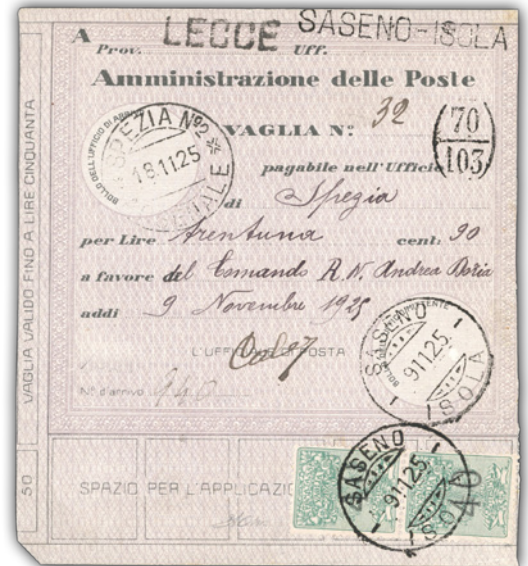 A LECCE SASENO-ISOLA
Prov. Uff.
Amministrazione delle Poste
VAGLIA Nº 32
70
103
BOLLO DELL'UFFICIO DI
SPEZIA Nº2
18.11.25
pagabile nell'Ufficio
di Spezia
per Lire trentuna cent: 90
a favore del Comando R.N. Andrea Doria
addì 9 Novembre 1925
L'UFFICIALE DI POSTA
SASENO
9.11.25.
ISOLA
Nº d'arrivo
VAGLIA VALIDO FINO A LIRE CINQUANTA
50
SPAZIO PER L'APPLICAZIO
SASENO
9.11.25.
ISOLA
40